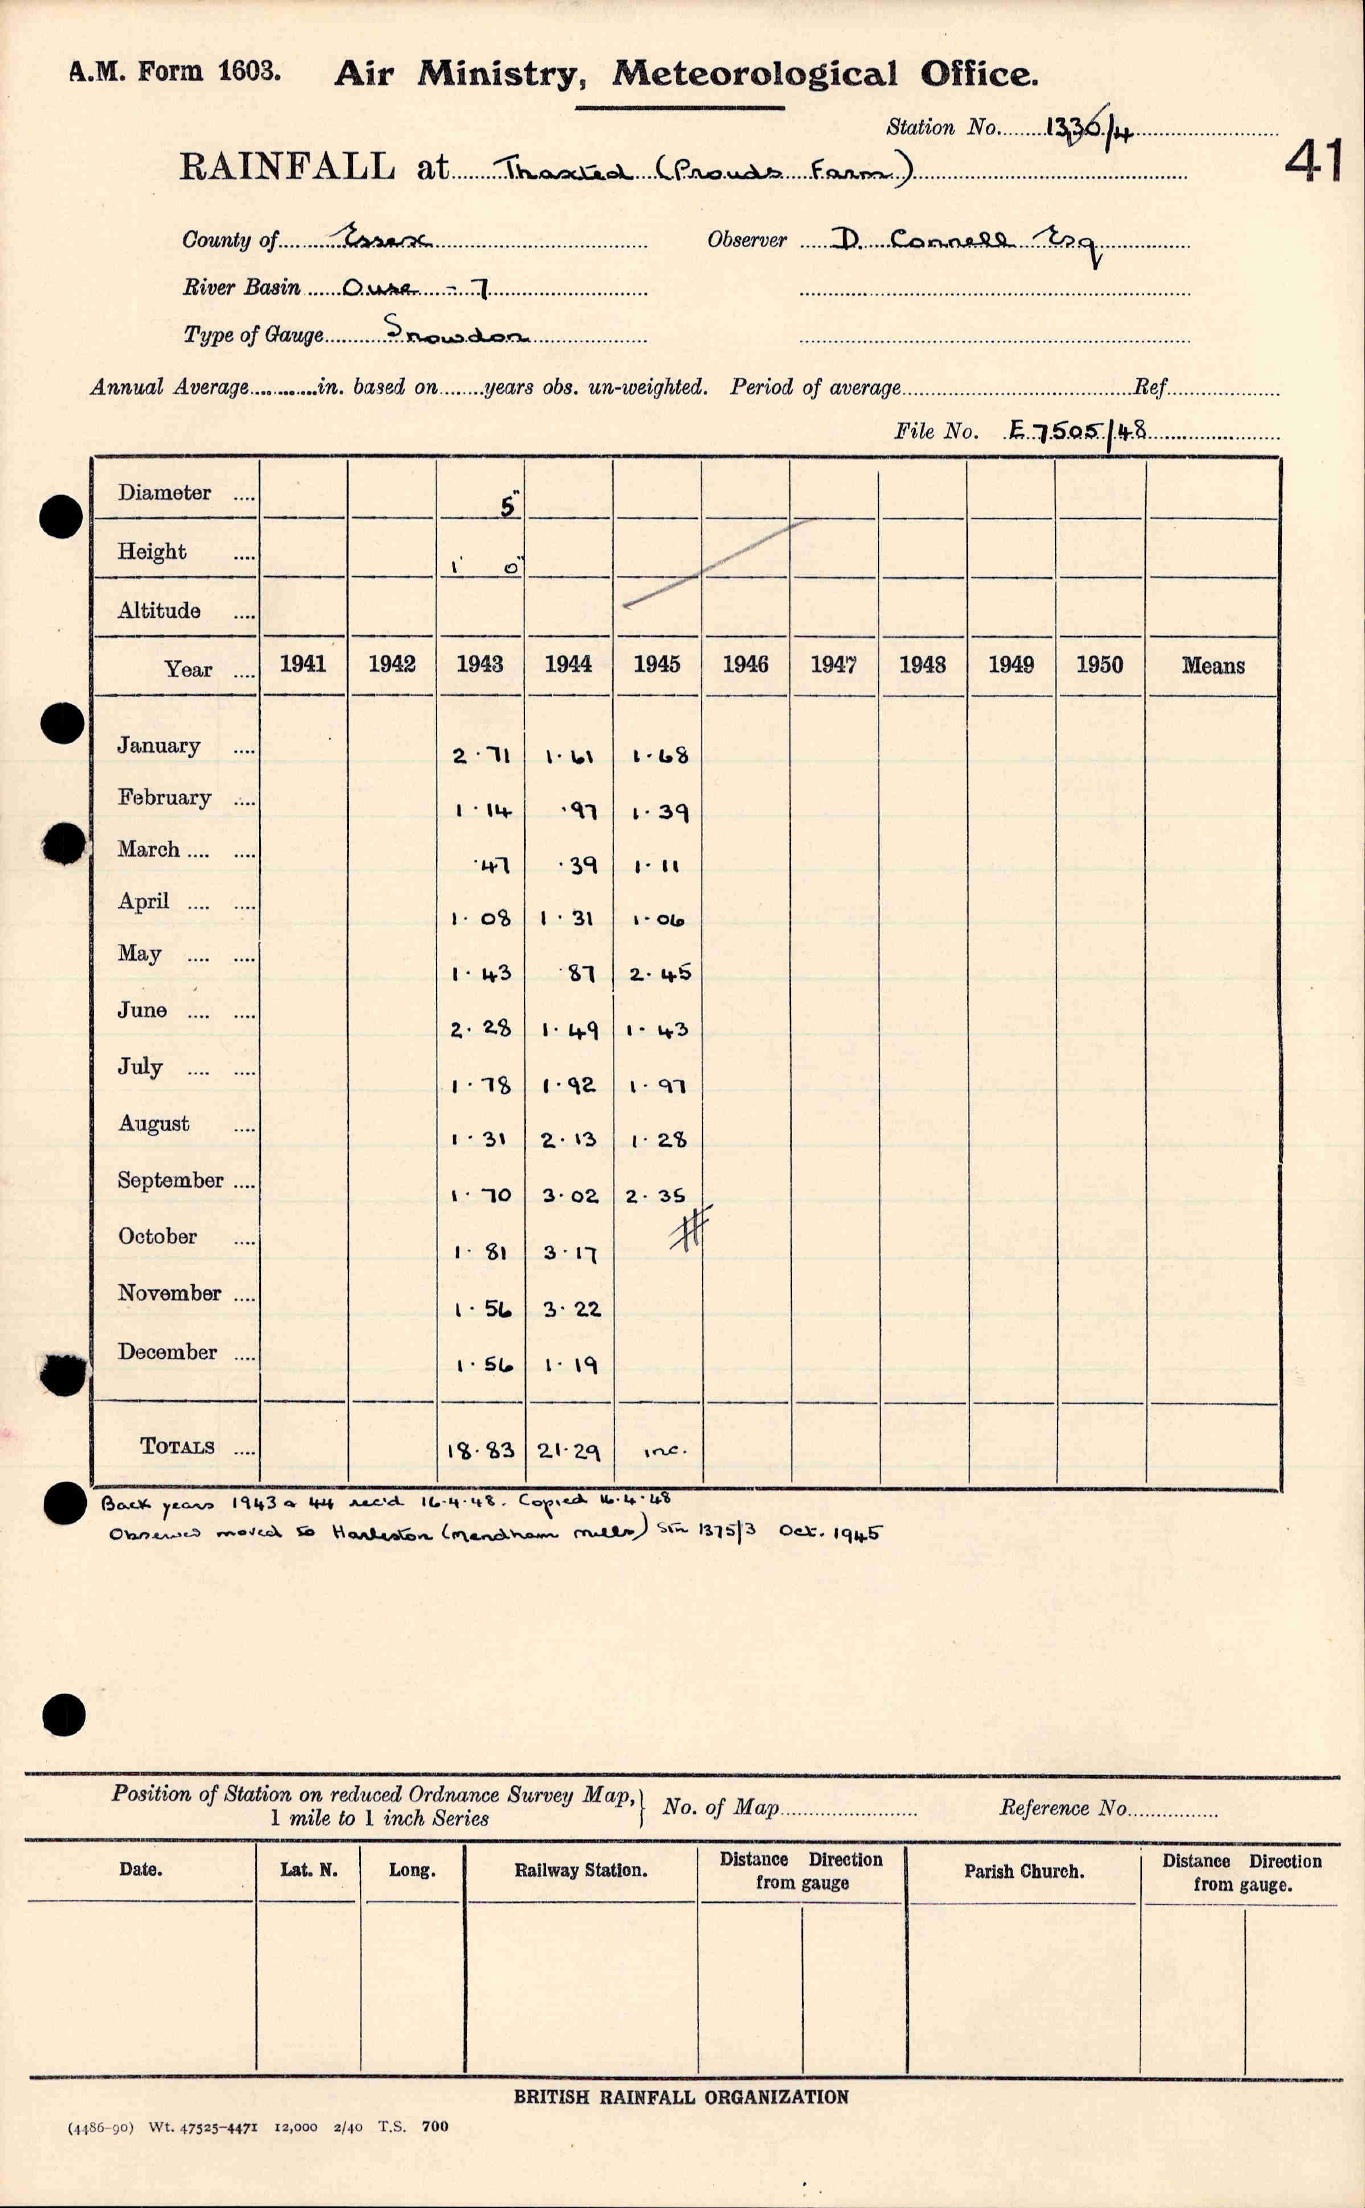 A.M. Form 1603. Air Ministry, Meteorological Office.
Station No. 1336/4
41
RAINFALL at Thaxted (Prouds Farm)
County of Essex Observer D. Connell Esq
River Basin Ouse - 7
Type of Gauge Snowdon
Annual Average in. based on years obs. un-weighted. Period of average Ref.
File No. E 7505/48
Diameter .... 5"
Height .... 1' 0"
Altitude ....
Year .... 1941 1942 1943 1944 1945 1946 1947 1948 1949 1950 Means
January .... 2.71 1.61 1.68
February .... 1.14 .97 1.39
March .... .... .47 .39 1.11
April .... .... 1.08 1.31 1.06
May .... .... 1.43 .87 2.45
June .... .... 2.28 1.49 1.43
July .... .... 1.78 1.92 1.97
August .... 1.31 2.13 1.28
September .... 1.70 3.02 2.35
October .... 1.81 3.17
November .... 1.56 3.22
December .... 1.56 1.19
TOTALS .... 18.83 21.29 inc.
Back years 1943 & 44 rec'd 16.4.48. Copied 16.4.48
Observer moved to Harleston (Mendham Mills) Stn 1375/3 Oct. 1945
Position of Station on reduced Ordnance Survey Map, 1 mile to 1 inch Series } No. of Map Reference No.
Date. Lat. N. Long. Railway Station. Distance Direction from gauge Parish Church. Distance Direction from gauge.
BRITISH RAINFALL ORGANIZATION
(4486-90) Wt. 47525-4471 12,000 2/40 T.S. 700